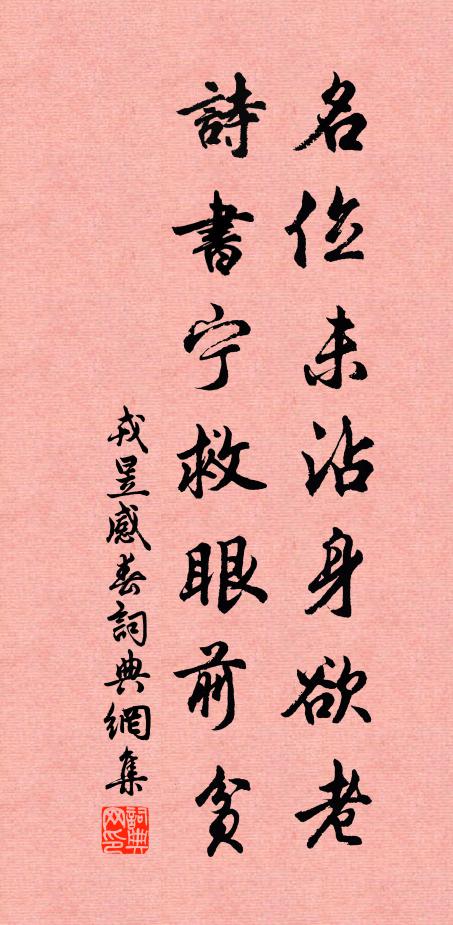 名位未沾身欲老
詩書宁救眼前貧
戎昱感春詞典網集
詞典网印